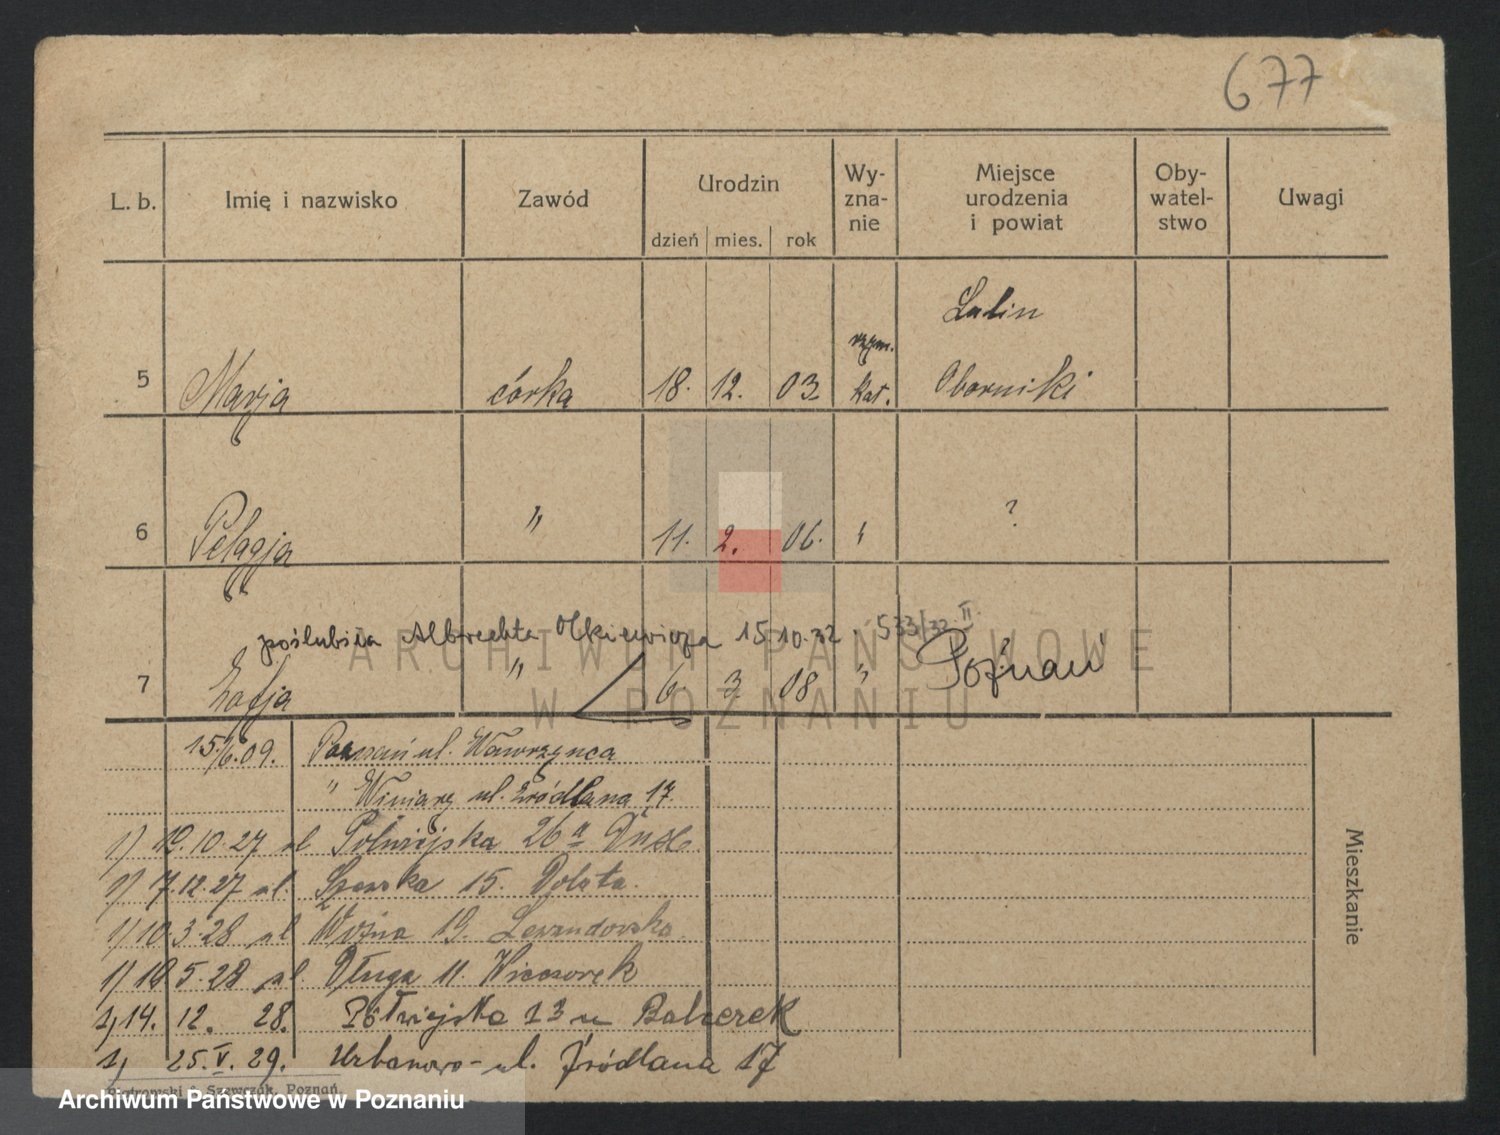 677
L. b. Imię i nazwisko Zawód Urodzin dzień mies. rok Wy-zna-nie Miejsce urodzenia i powiat Oby-watel-stwo Uwagi
Lulin
5 Marja córka 18. 12. 03. rzym. kat. Oborniki
6 Pelagja " 11. 2. 06. " ?
poślubiła Albrechta Olkiewicza 15.10.32 533/32 II
7 Zofja " 6. 3. 08 " Poznań
15/6.09. Poznań ul. Wawrzynca
" Winiary ul. Źródlana 17.
1) 19.10.27 ul Półwiejska 26a
1) 7.12.27 ul. Szewska 15. Dolata.
1) 10.3.28 ul Woźna 19.
1) 18.5.28 ul Długa 11. Wieczorek
1) 14. 12. 28. Półwiejska 13 u Balcerek
1) 25.V.29. Urbanowo-ul. Źródlana 17
Mieszkanie
Piotrowski & Szewczák, Poznań.
ARCHIWUM PAŃSTWOWE
W POZNANIU
Archiwum Państwowe w Poznaniu